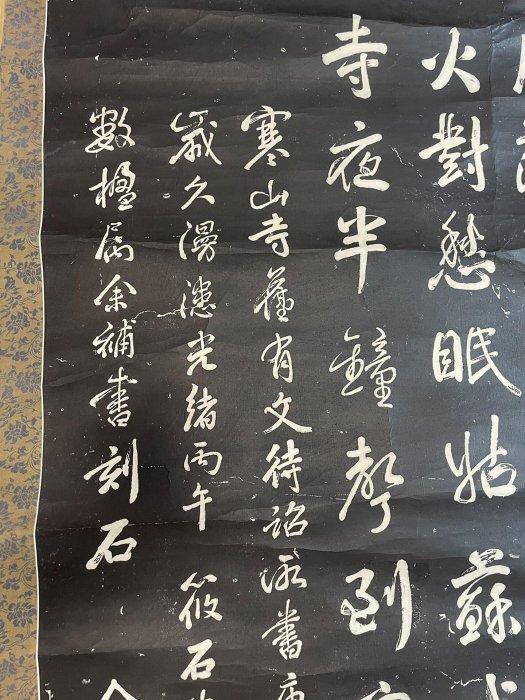 火對愁眠姑蘇
寺夜半鐘聲到
寒山寺舊有文待詔所書
歲久漫漶光緒丙午 筱石
數楹屬余補書刻石